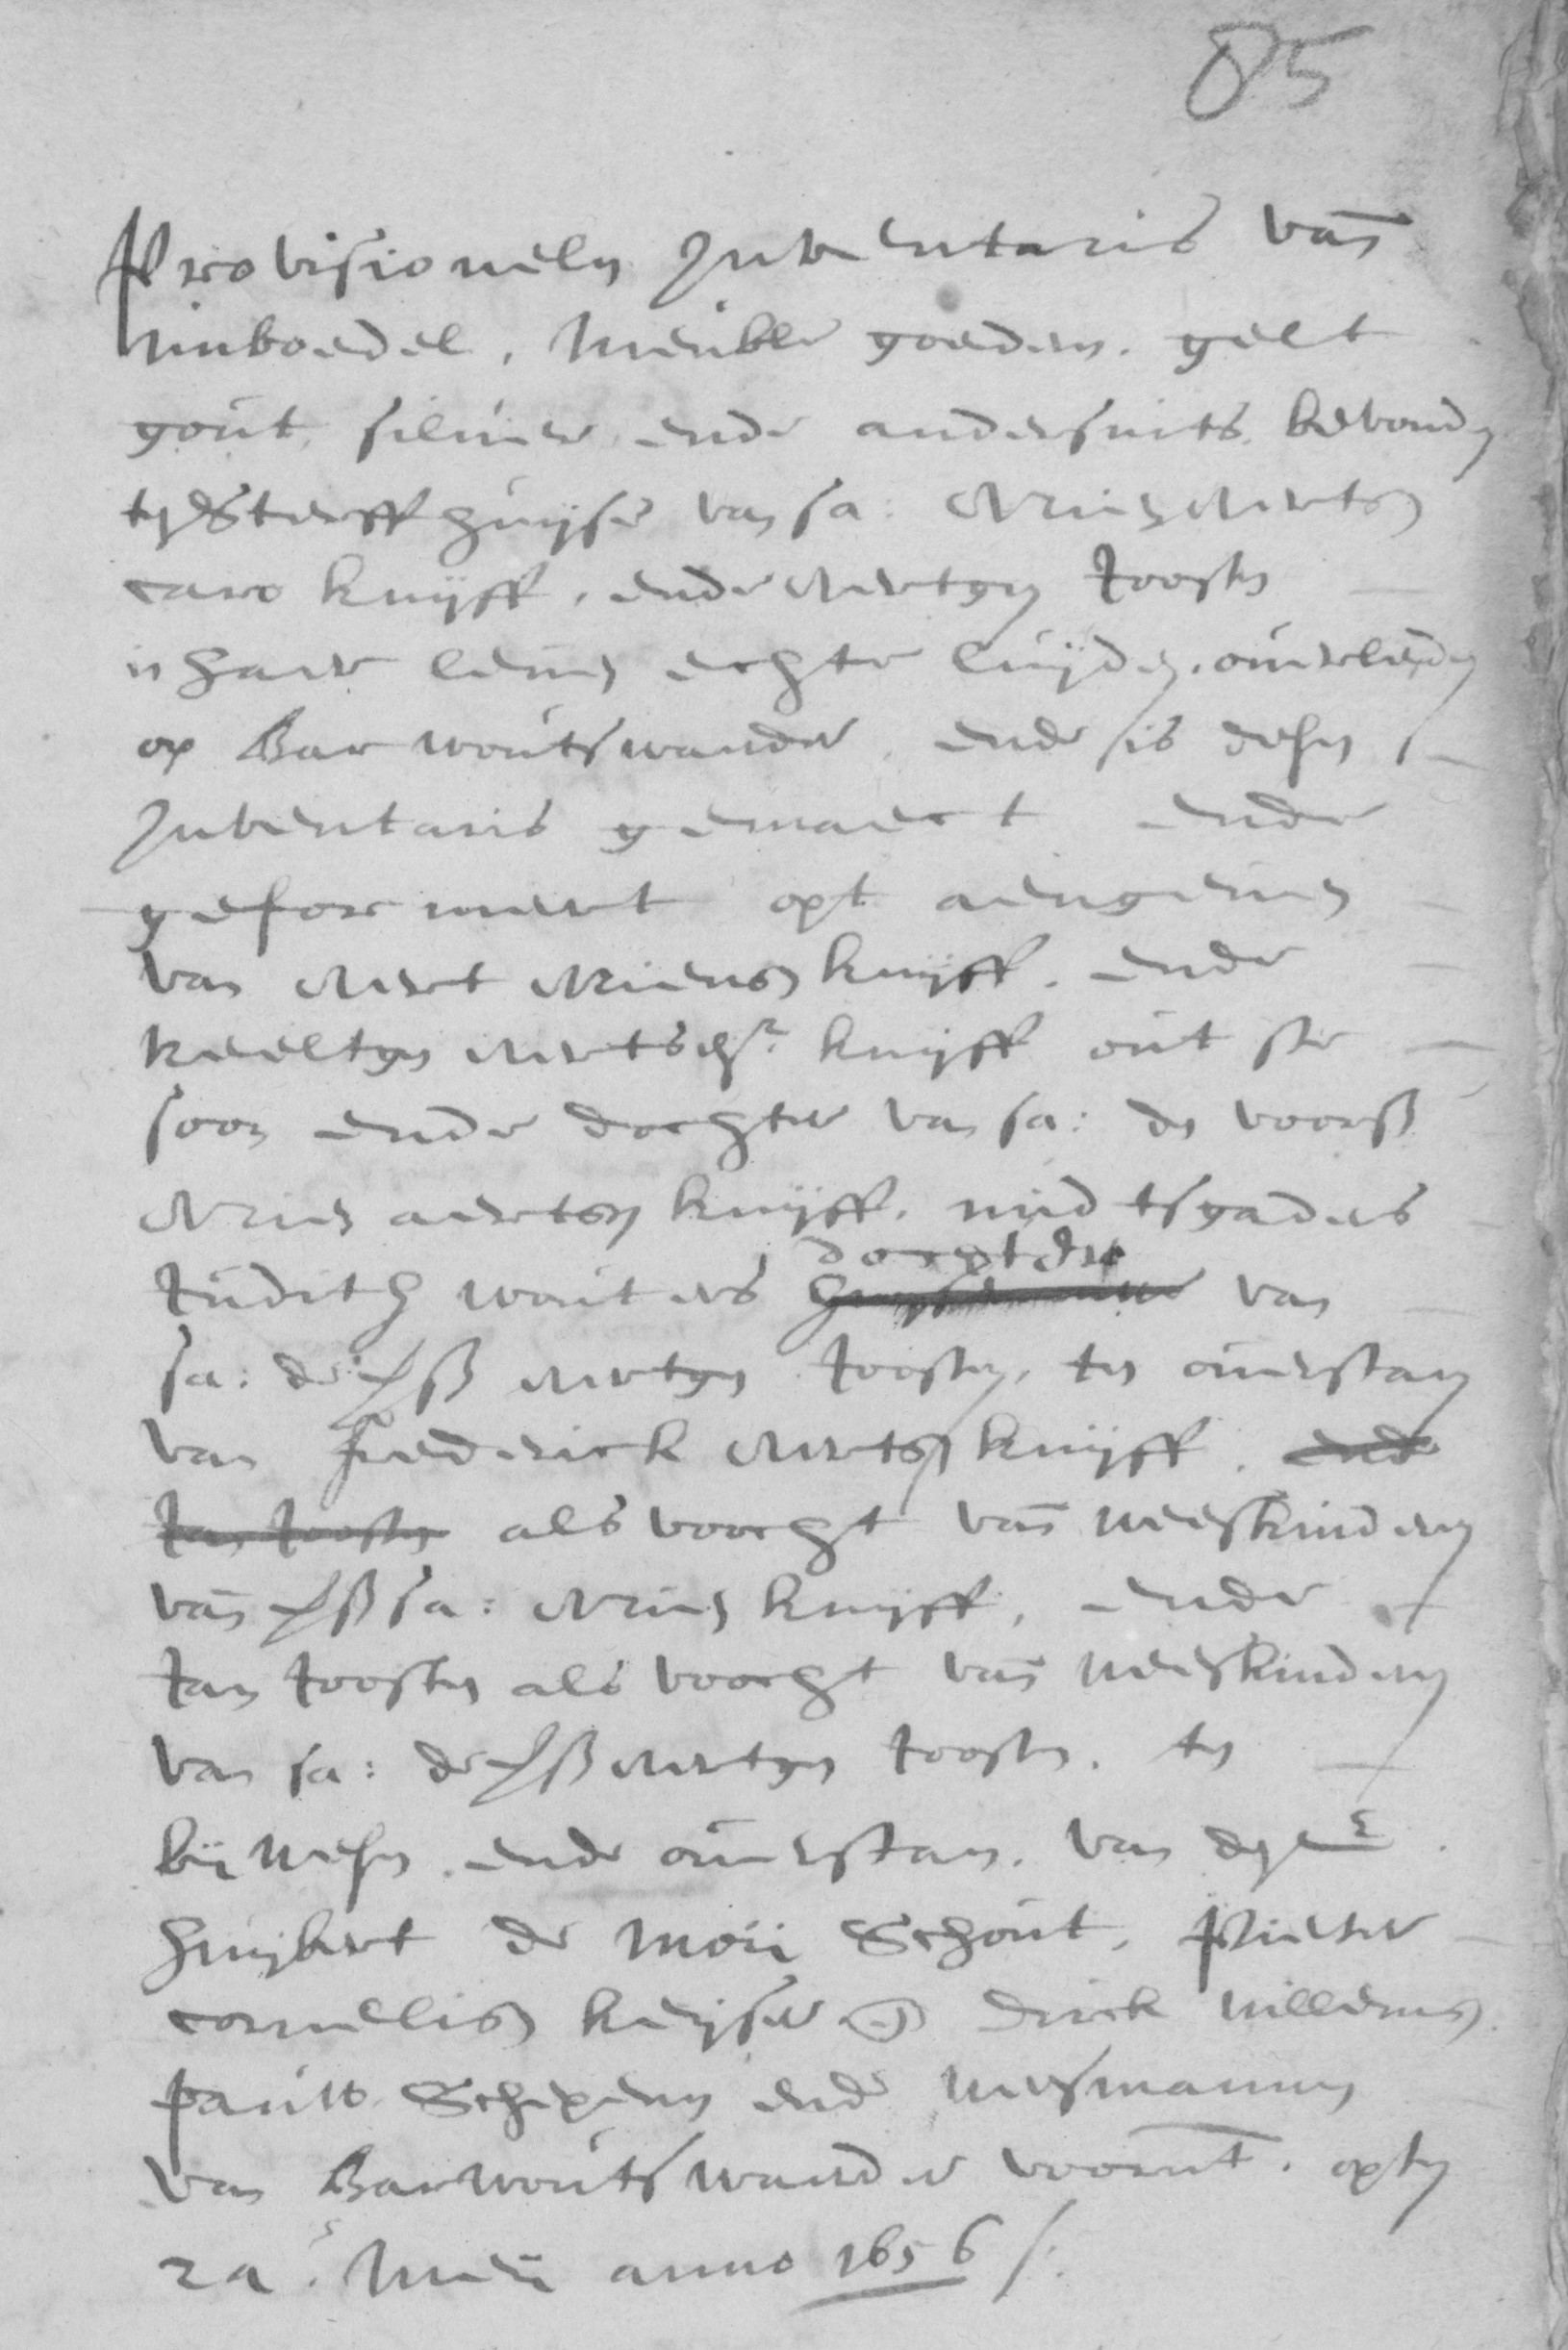 85
Provisionelen Inventaris vañ
Innboedel, Meuble goeden, gelt
gout, silver, ende andersints bevonden
tsterffhuijse van sa: Arien Aertsen
caro kuijff, ende Aertgen Joosten
in haer leven echte luijden, overleden
op Barwoutswaerder, ende is desen
Inventaris gemaect ende
geformeert opt aengeven
van Aert Ariensen kuijff, ende
Neeltgen Aertsdr. kuijff out ste
soon ende dochter van sa: de voorss
Arien aertsen kuijff, midtsgaders
Judith wouters dochter van
sa: de voorss Aertgen Joosten, ten overstaen
van Frederick Aertsen kuijff, ende
Jan Joosten als voocht vañ weeskinderen
vañ voorss sa: Arien kuijff, ende
Jan Joosten als voocht vañ weeskinderen
van sa: de voorss Aertgen Joosten, ten
bij wesen ende overstaen van de
Huijbert de Moij Schout, Pieter
cornelisen keijser en Dirck Willemsen
Pauw Schepenen ende weesmannen
van Barwoutswaerder voornt. opten
2a. Meij anno 1656 /.